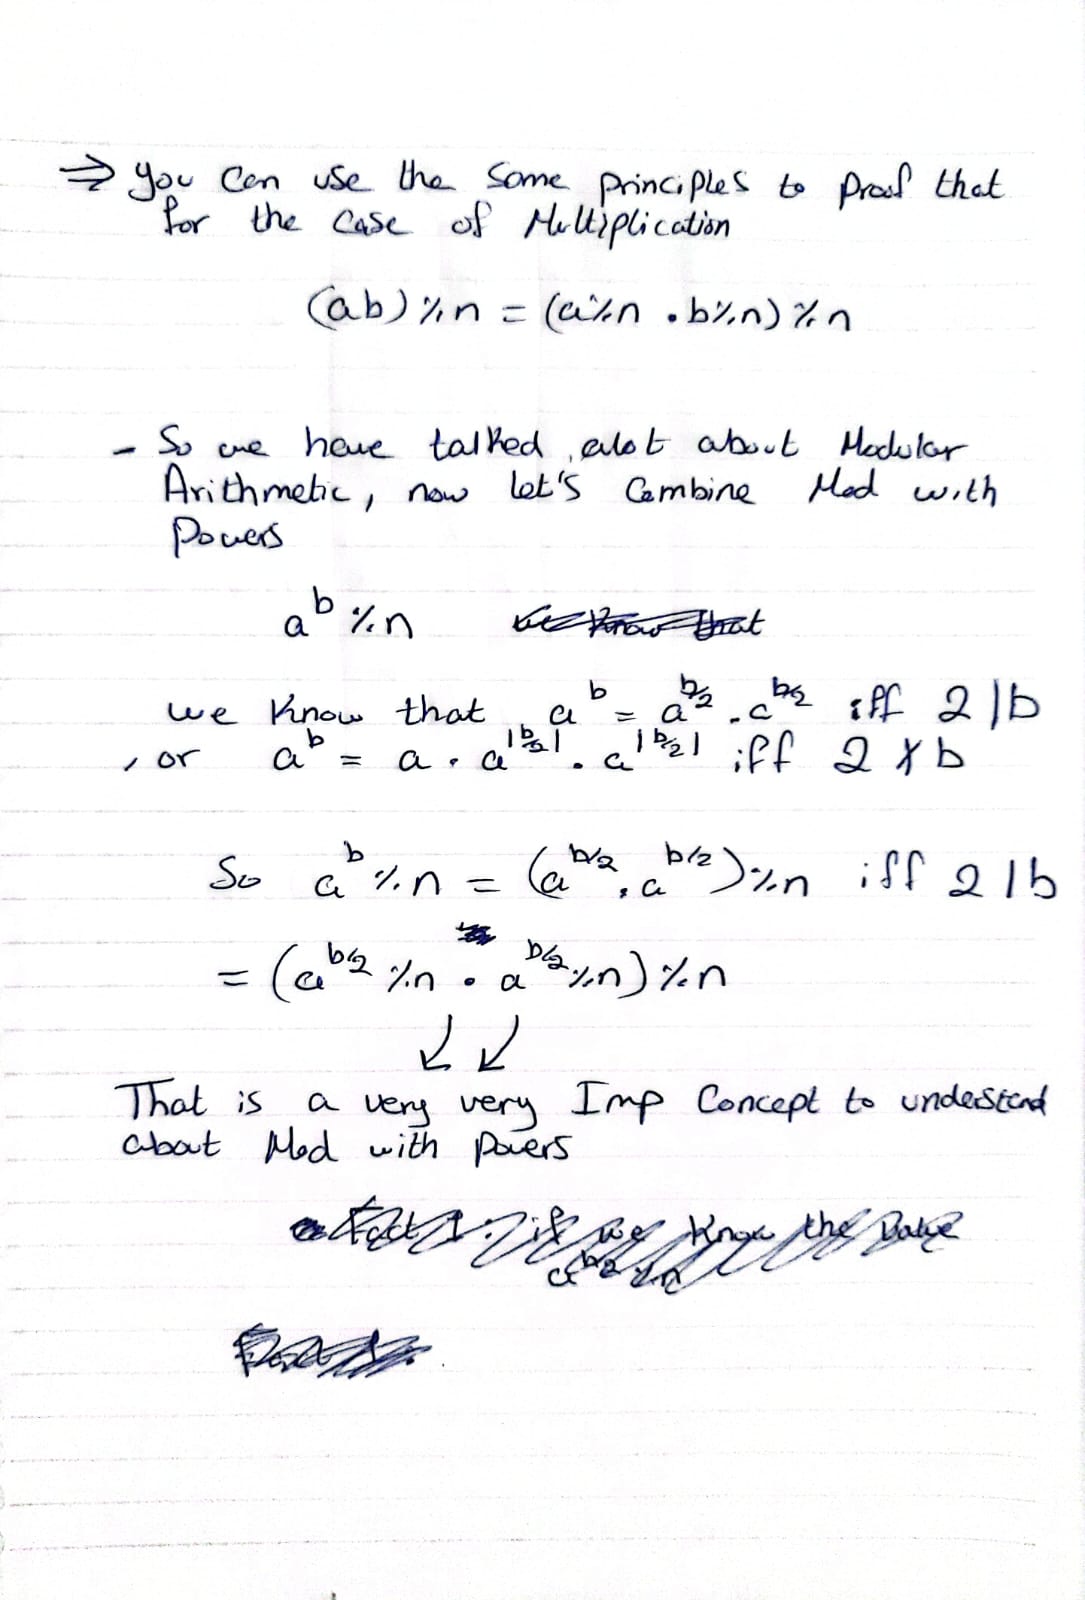 ⇒ you can use the same principles to Proof that
for the case of Multiplication
(ab) % n = (a%n . b%n) % n
- So we have talked alot about Modular
Arithmetic, now let's Combine Mod with
Powers
a^b % n
we know that a^b = a^b/2 . a^b/2 iff 2 | b
, or a^b = a . a^|b/2| . a^|b/2| iff 2 ∤ b
So a^b % n = (a^b/2 . a^b/2) % n iff 2 | b
= (a^b/2 % n . a^b/2 % n) % n
↙ ↙
That is a very very Imp Concept to understand
about Mod with Powers